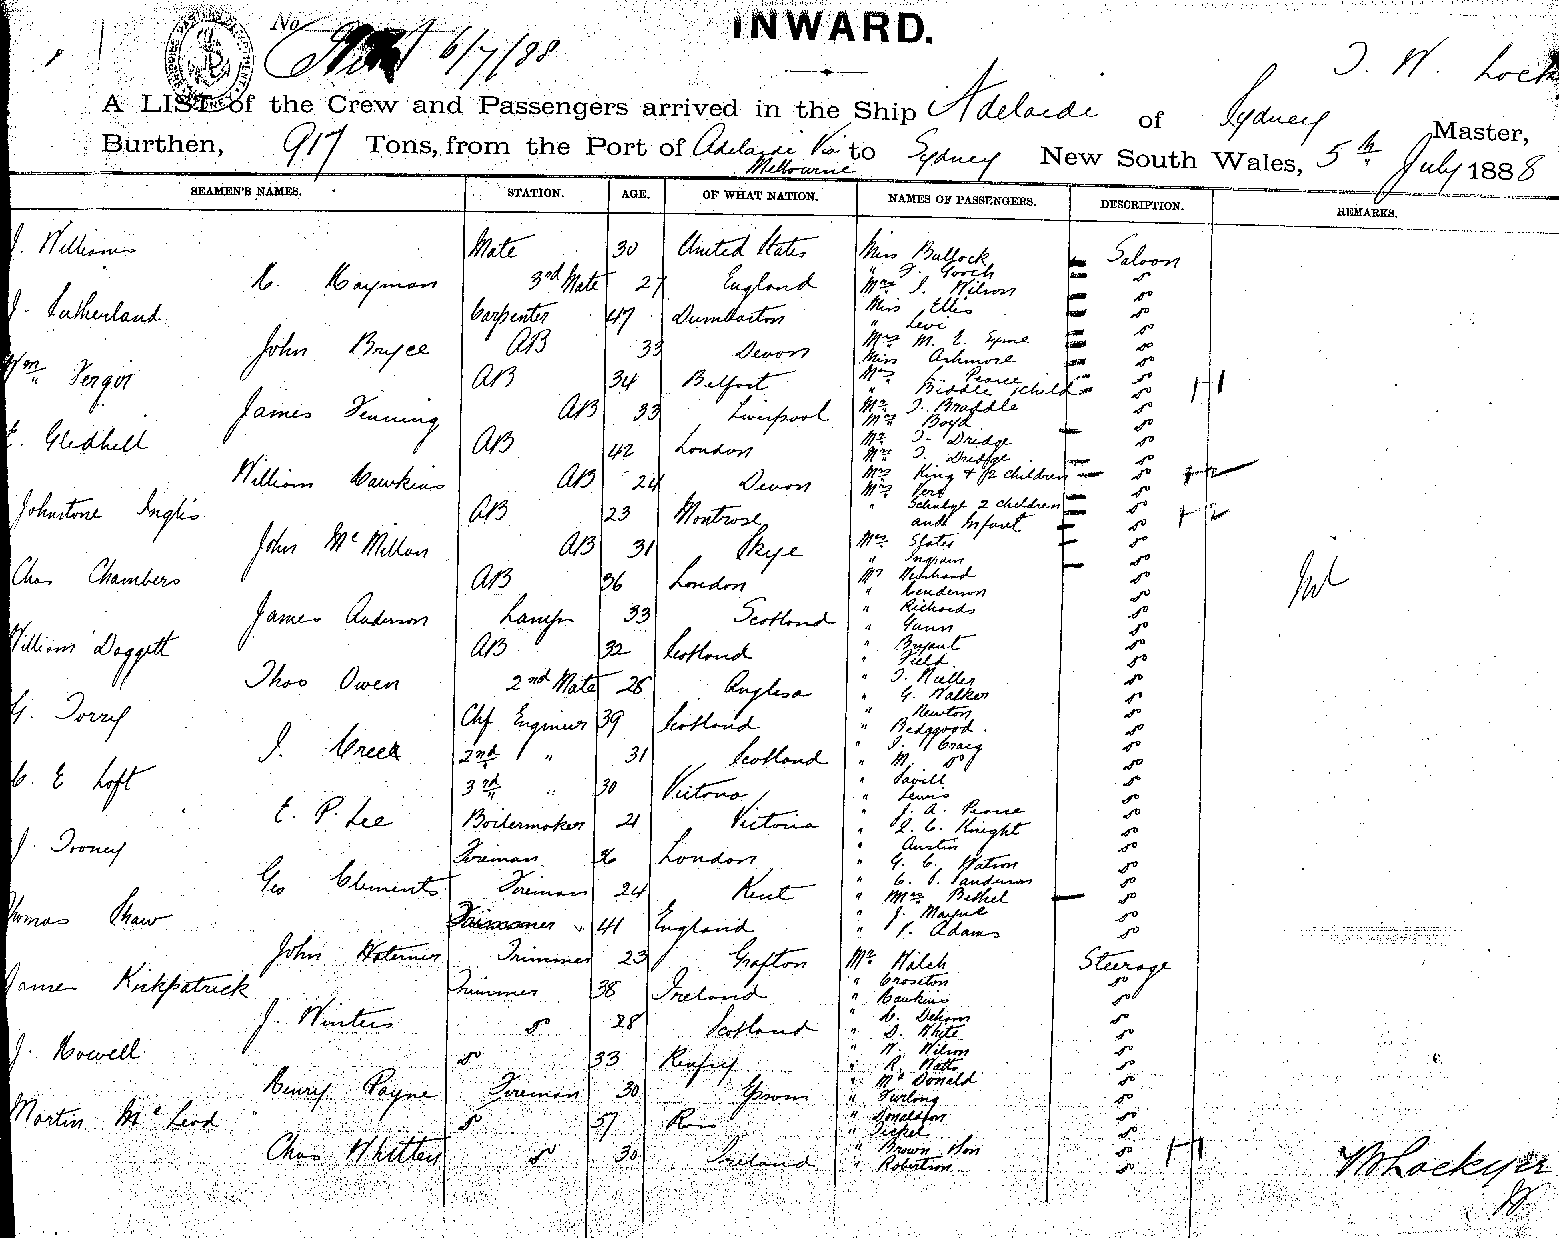 INWARD.
No 6/7/88
J. W. Lock
A LIST of the Crew and Passengers arrived in the Ship Adelaide of Sydney Master,
Burthen, 917 Tons, from the Port of Adelaide Via Melbourne to Sydney New South Wales, 5th July 1888
SEAMEN'S NAMES. STATION. AGE. OF WHAT NATION. NAMES OF PASSENGERS. DESCRIPTION. REMARKS.
J. Williams Mate 30 United States
H. Hayman 3rd Mate 27 England
J. Sutherland Carpenter 47 Dumbarton
John Bryce AB 33 Devon
Wm AB 34 Belfast
James Fenning AB 33 Liverpool
E. Gledhill AB 42 London
William Hawkins AB 24 Devon
Johnstone Inglis AB 23 Montrose
John McMillan AB 31 Skye
Chas Chambers AB 36 London
James Anderson Lamps 33 Scotland
William Doggett AB 32 Scotland
Thos Owen 2nd Mate 28 Anglesa
G. Torry Chf Engineer 39 Scotland
J. Creek 2nd " 31 Scotland
C. E Loft 3rd " 30 Victoria
E. P. Lee Boilermaker 21 Victoria
J. Tooney Fireman 36 London
Geo Clements Fireman 24 Kent
Thomas Shaw Trimmer 41 England
John Trimmer 23 Grafton
James Kirkpatrick Trimmer 38 Ireland
J. Winters do 28 Scotland
J. Howell do 33
Henry Payne Fireman 30
Martin McLeod do 57 Ross
Chas Whitten do 30 Ireland
Miss Bullock Saloon
" J. Gooch do
Mrs J. Wilson do
Miss Ellis do
" Levi do
Mrs M. E. do
Miss Ashmore do
Mrs Pearce do
" Biddle & child do
Mr J. Braddle do
Mrs Boyd do
Mr J. Dredge do
Mrs J. Dredge do
Mrs King & 2 children do
Mrs
" 2 children
and Infant
Mrs Slater
" Ingram
Mr
" Henderson
" Richards
" Gunn
" Bryant
" Field
" J. Muller
" G. Walker
" Newton
" Bedggood
" J. Craig
" M. do
" Savill
" Lewis
" J. A. Pearce
" J. C. Knight
" Austin
" G. C. Watson
" C. S. Sanderson
" Mrs Bethel
" J. Mayne
" P. Adams
Mr Walch Steerage
" Croston do
" Hawkins do
" H.
" D. White
" W. Wilson
" R. Watts
" McDonald
" Furlong
" Donaldson
" Pickel
" Brown & Son
" Robertson
Nil